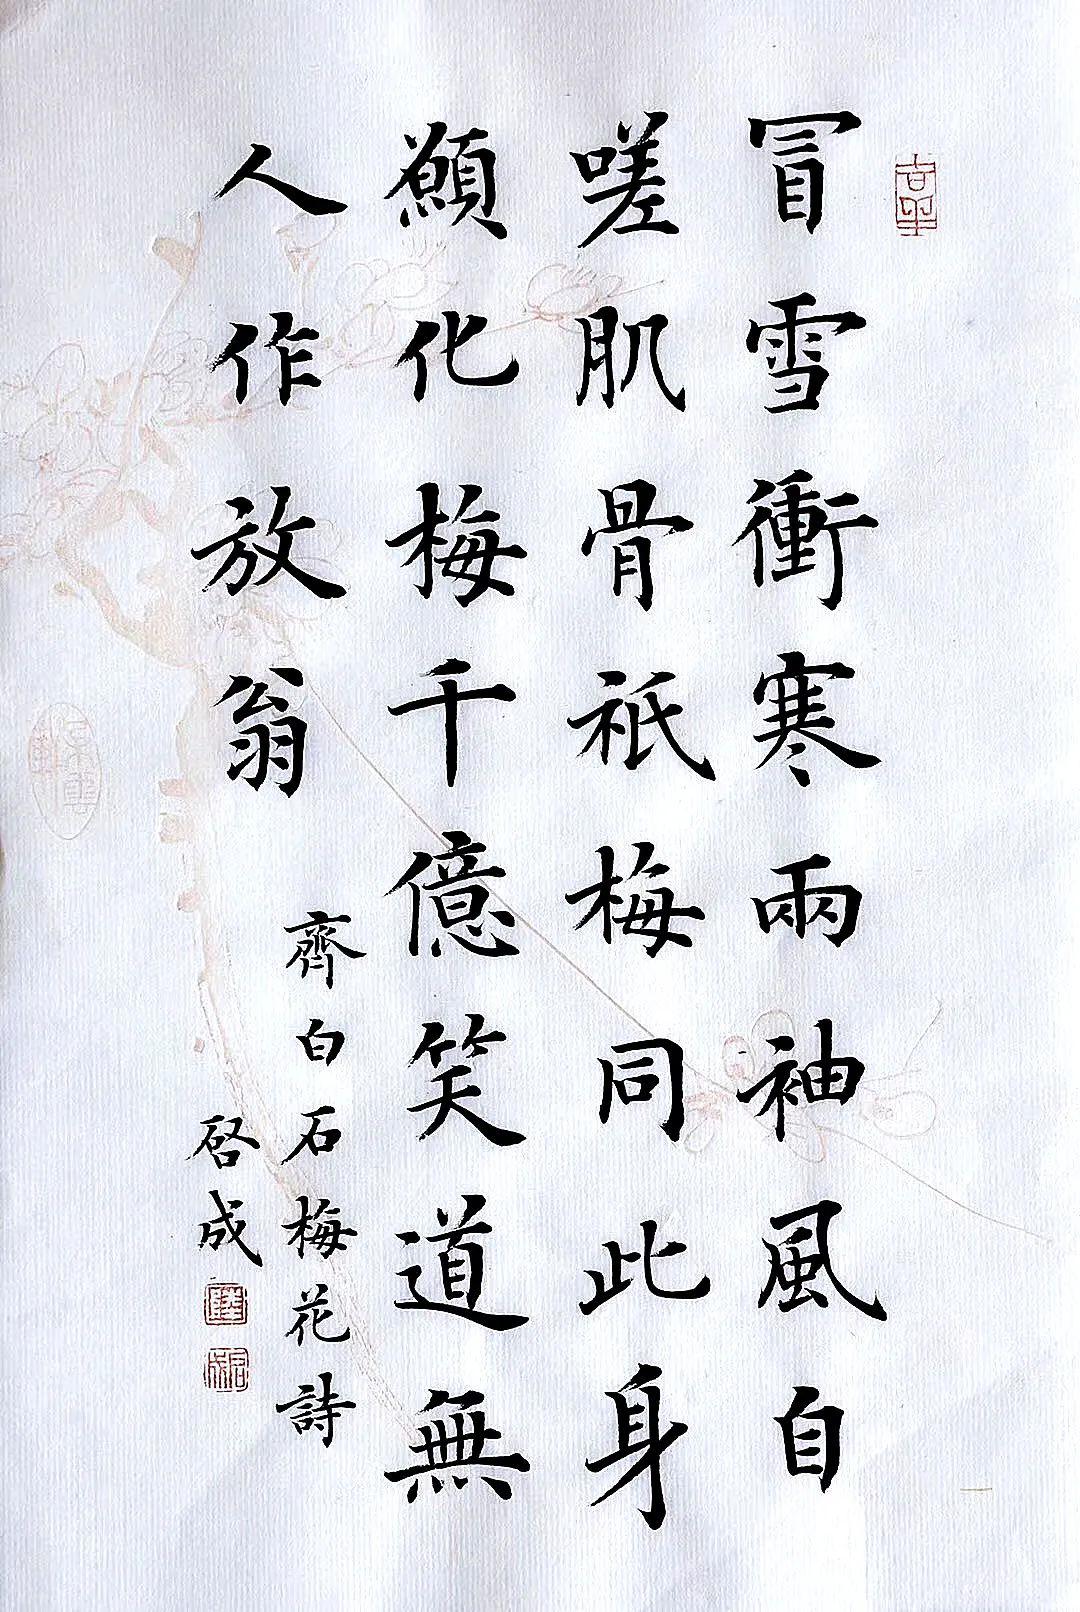 冒雪衝寒兩袖風自
嗟肌骨祇梅同此身
願化梅千億笑道無
人作放翁
齊白石梅花詩
啓成